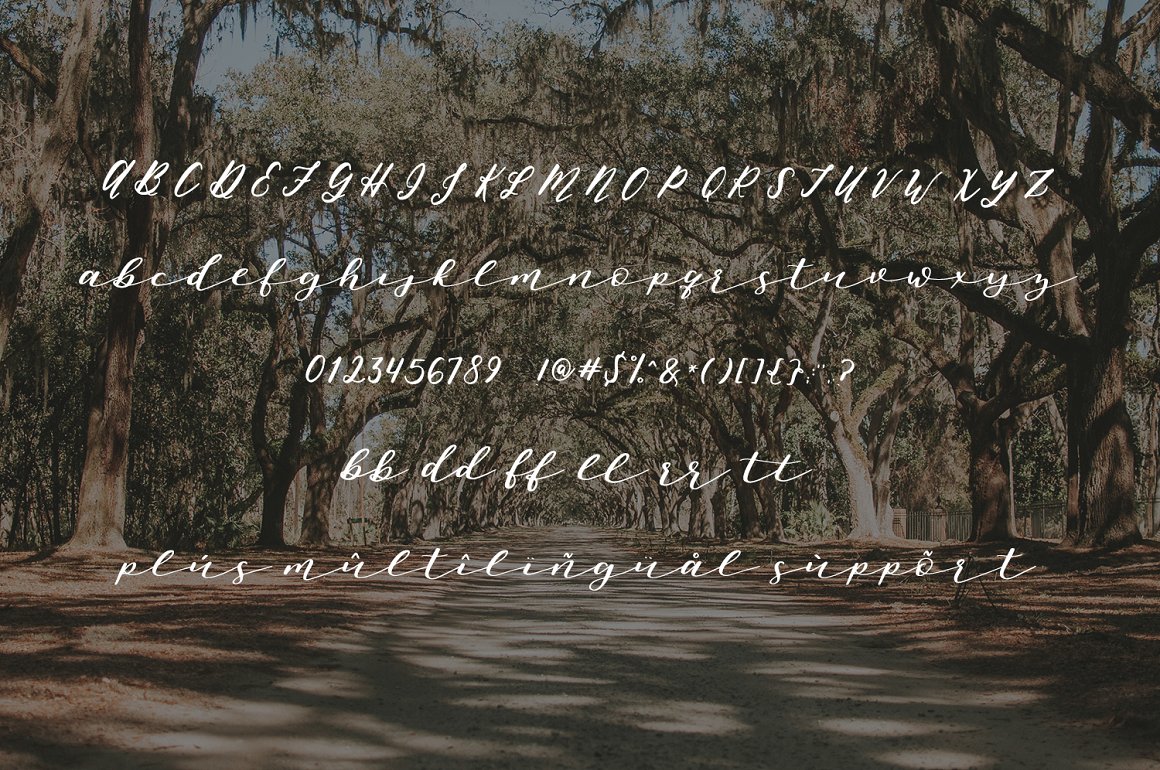 A B C D E F G H I J K L M N O P Q R S T U V W X Y Z
a b c d e f g h i j k l m n o p q r s t u v w x y z
0123456789 !@#$%^&*()[]{};:,.?
bb dd ff ll rr tt
plús mûltîlïñgüål sùppõrt